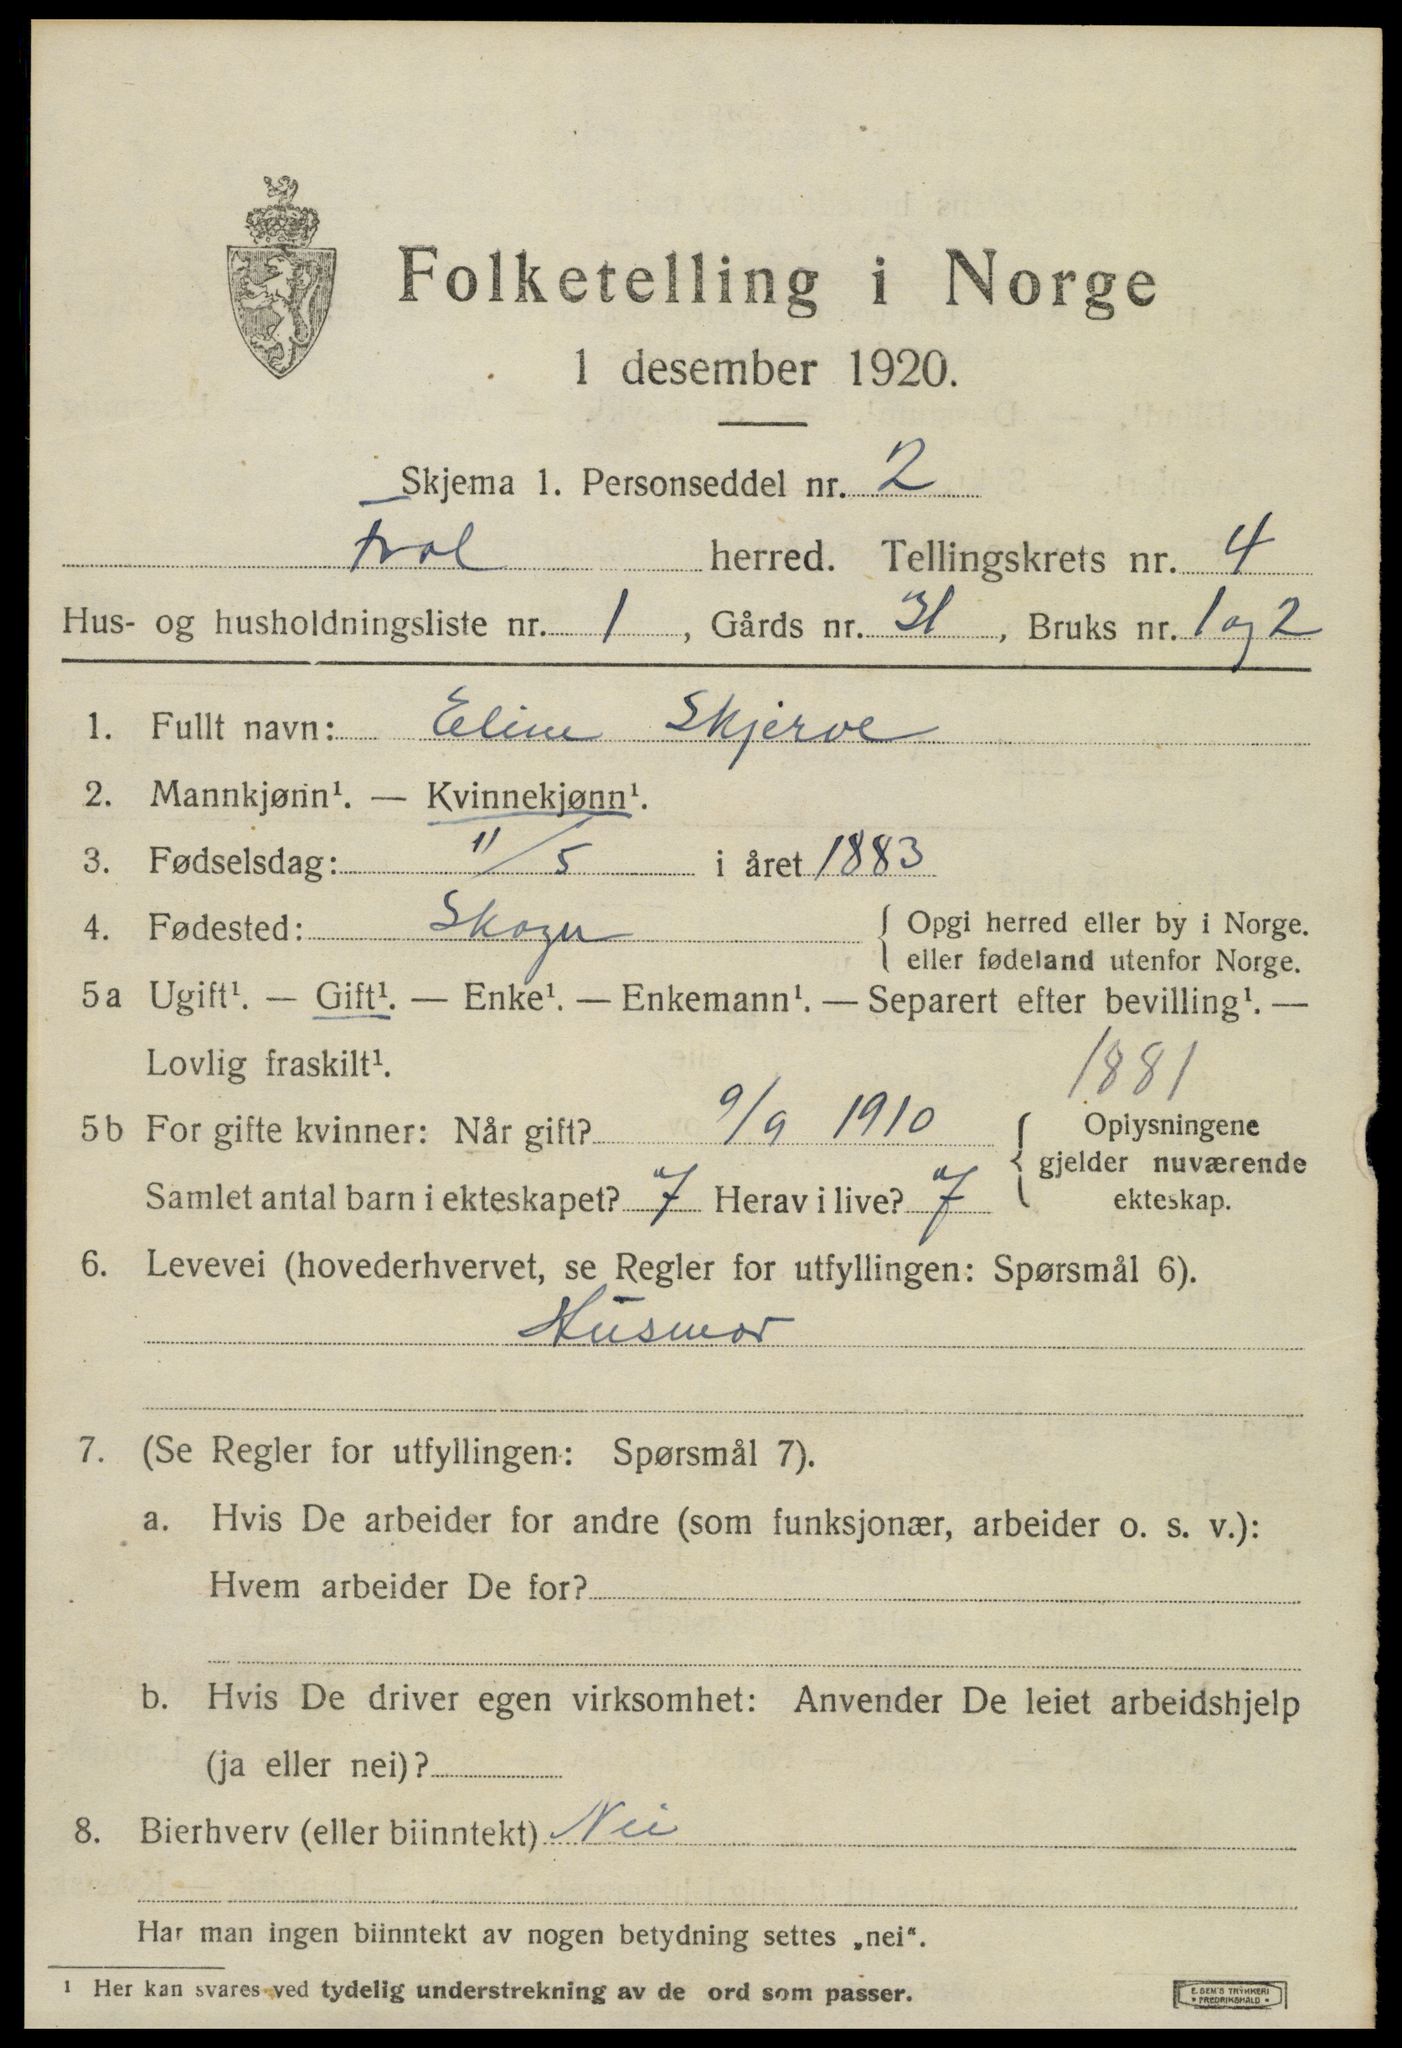 Folketelling i Norge
1 desember 1920.
Skjema 1. Personseddel nr. 2
Frol herred. Tellingskrets nr. 4
Hus- og husholdningsliste nr. 1, Gårds nr. 31, Bruks nr. 1 og 2
1. Fullt navn: Eline Skjerve
2. Mannkjønn¹. — Kvinnekjønn¹.
3. Fødselsdag: 11/5 i året 1883
4. Fødested: Skogn { Opgi herred eller by i Norge.
eller fødeland utenfor Norge.
5a Ugift¹. — Gift¹. — Enke¹. — Enkemann¹. — Separert efter bevilling¹. —
Lovlig fraskilt¹. 1881
5b For gifte kvinner: Når gift? 9/9 1910 { Oplysningene
gjelder nuværende
Samlet antal barn i ekteskapet? 7 Herav i live? 7 ekteskap.
6. Levevei (hovederhvervet, se Regler for utfyllingen: Spørsmål 6).
Husmor
7. (Se Regler for utfyllingen: Spørsmål 7).
a. Hvis De arbeider for andre (som funksjonær, arbeider o. s. v.):
Hvem arbeider De for?
b. Hvis De driver egen virksomhet: Anvender De leiet arbeidshjelp
(ja eller nei)?
8. Bierhverv (eller biinntekt) Nei
Har man ingen biinntekt av nogen betydning settes „nei“.
¹ Her kan svares ved tydelig understrekning av de ord som passer.
E. SEM'S TRYKKERI
• FREDRIKSHALD •